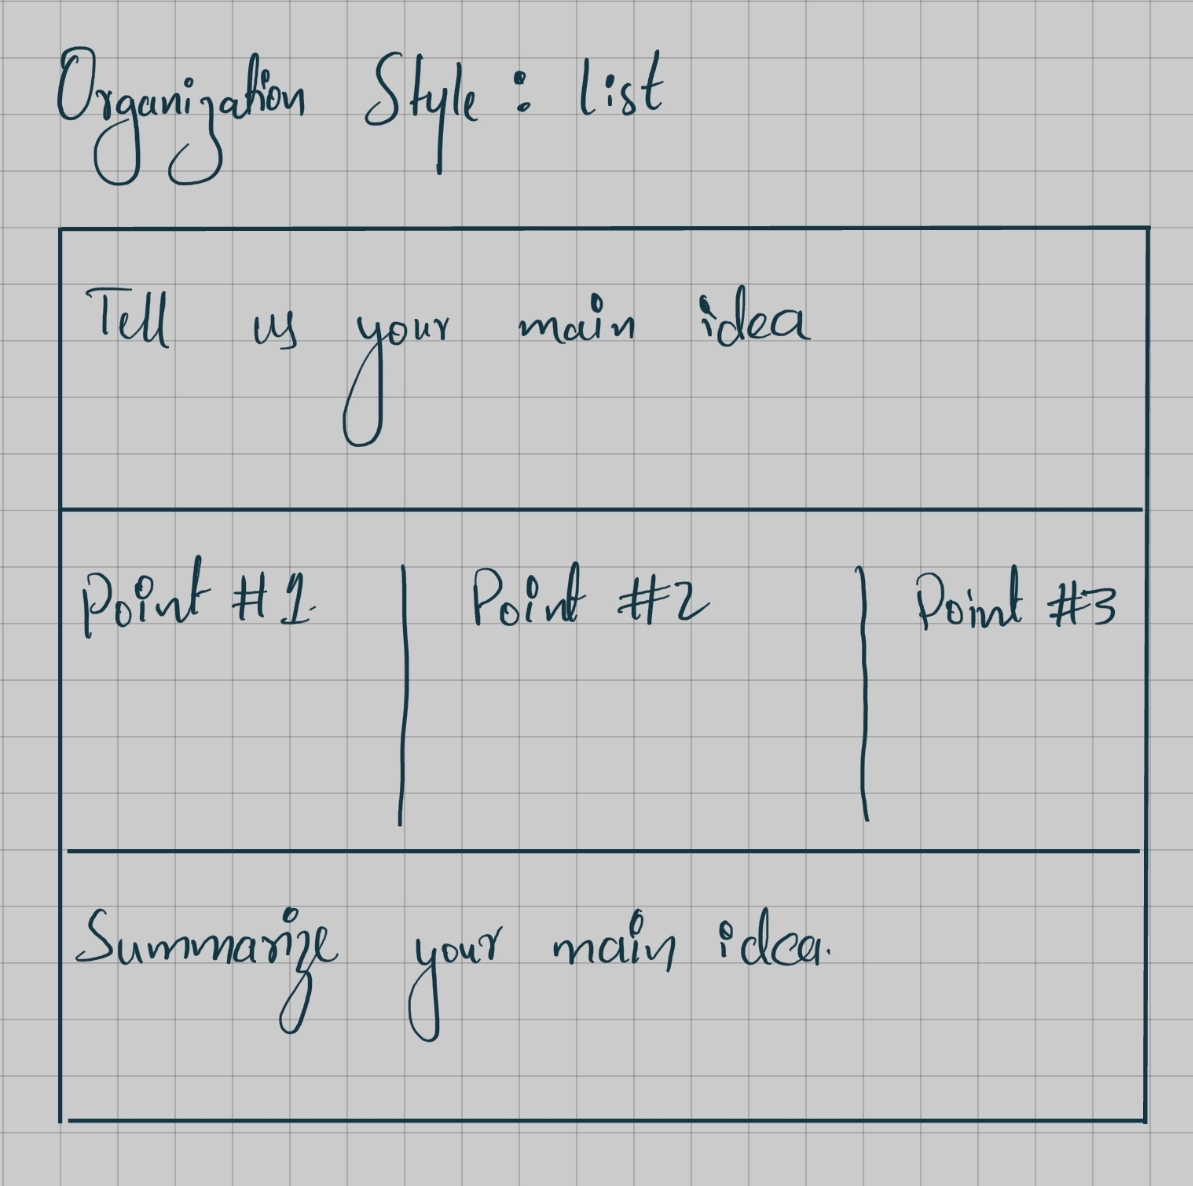 Organization Style : list
Tell us your main idea
Point #1. Point #2 Point #3
Summarize your main idea.